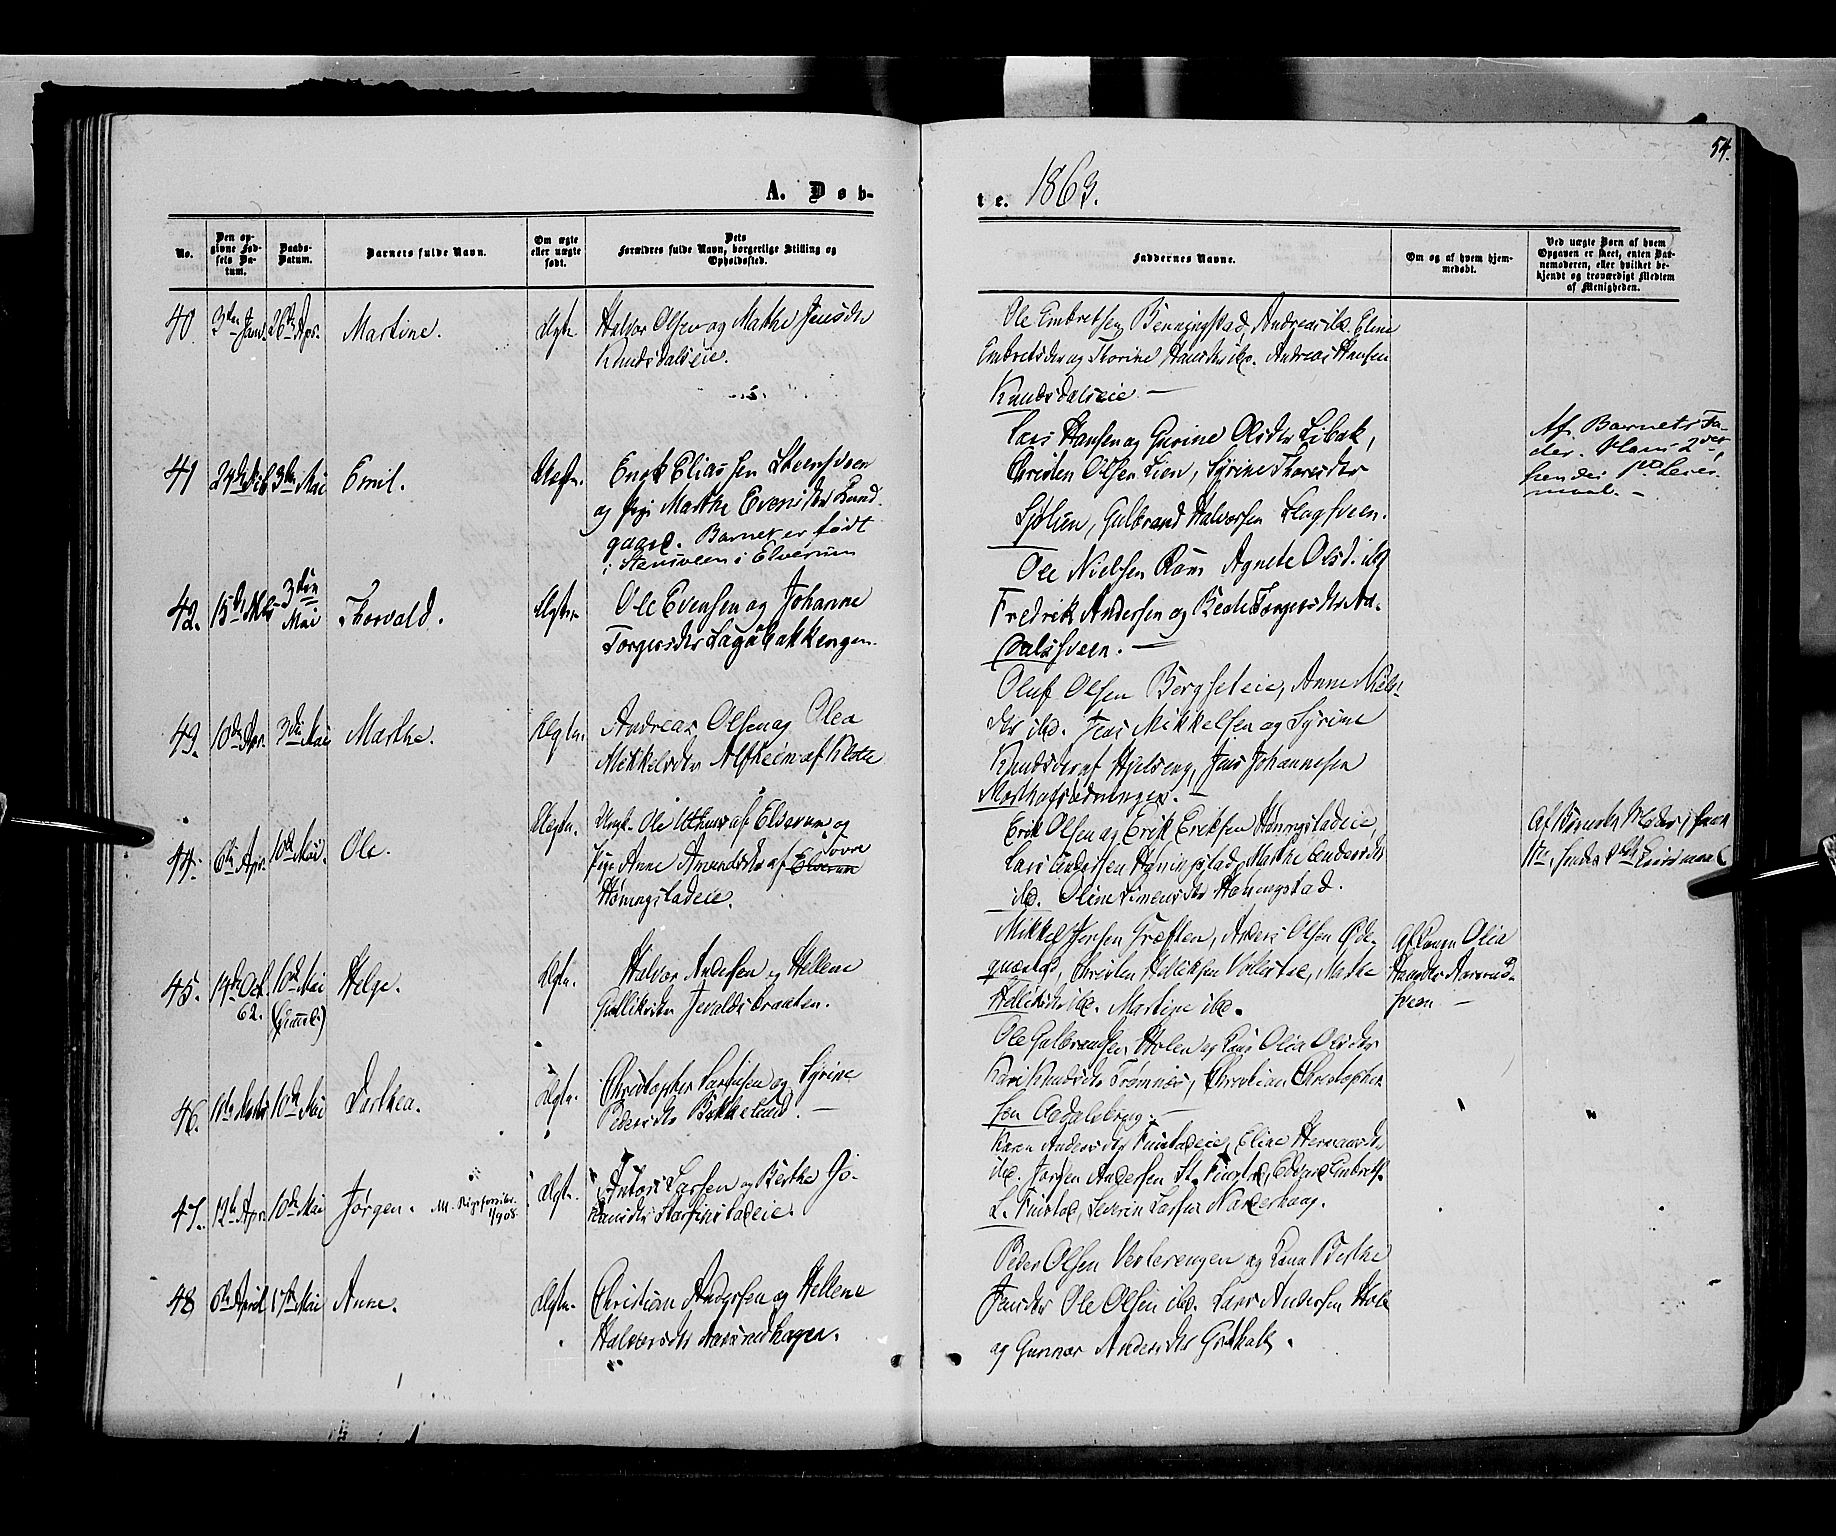 54.
A. Døb-
te. 1863.
No.
Den op-
givne Fød-
sels Da-
tum.
Daabs-
Datum.
Barnets fulde Navn.
Om ægte
eller uægte
født.
Dets
Forældres fulde Navn, borgerlige Stilling og
Opholdssted.
Faddernes Navne.
Om og af hvem hjem-
medøbt.
Ved uægte Børn af hvem
Opgaven er skeet, enten Bar-
nemoderen, eller hvilket be-
kjendt og troværdigt Medlem
af Menigheden.
40. 3die Jan. 26de Apr. Martine. Ægte. Halvor Olsen og Mathe Jensdtr
Knudsdalseie.
Ole Embretsen Benningstad, Andreas ibd. Eline
Embretsdtr og Thorine Hansdtr ibd. Andreas Hansen
Knudsdalseie —
41 3die Mai Emil. Uægte. Engk Eliassen Stensveen
og Pige Marthe Evensdtr Rund-
gaard. Barnet er født
i Stensveen i Elverum
Lars Hansen og Gurine Olsdtr Libak,
Christen Olsen Lien, Syrine Thoresdtr
Sjølien, Gulbrand Halvorsen Flagsveen.
Af Barnets Fa-
der. Hans 2det
hendes 1ste Leier-
maal. —
42. 15de 3die
Mai Thorvald. Ægte. Ole Evensen og Johanne
Torgersdtr Lagaabakkengen.
Ole Nielsen Ram Agnete Olsd. ibd
Fredrik Andersen og Beate Torgersdtr Aa-
dalssveen. —
43. 10de Apr. 3die Mai Marthe. Ægte. Andreas Olsen og Olea
Mikkelsdtr Alfheim af Kloten
Oluf Olsen Bergseteie, Anne Niels-
dtr ibd. Jens Mikkelsen og Syrine
Knudsdtr af Hjelseng, Jens Johannesen
44. 6te Apr. 10de Mai. Ole. Uægte. Ungk. Ole af Elverum og
Pige Anne Amundsdtr af Elverum
Hørningstadeie.
Erik Olsen og Erik Eriksen Hørningstadeie,
Lars Andersen Hørningstad, Marthe Andersdtr
ibd. Oline Simensdtr Hørningstad.
Af Barnets Moder; hans
1ste, hendes Leiermaal
45. 14de Oct.
62. 10de Mai
Helge. Ægte. Halvor Andersen og Hellene
Gulliksdtr Jevaldsbraaten.
Mikkel Jensen Græften, Anders Olsen Øde-
qværnstad, Christen Helliksen Mette
Helliksdtr ibd. Martine ibd.
Af Konen Olia
Hansdtr
sveen —
46. 10de Mai Dorthea. Ægte. Christopher Larssen og Syrine
Pedersdtr Bakkelund. —
Ole Gulbrandsen Holen og Kone Olia Olsdtr
Kari Knudsdtr Trømnæs, Christian Christopher-
sen Aadalsbrug. —
47. 12te Apr. 10de Mai Jørgen. 1/9 08. Ægte. Anton Larsen og Berthe Jo-
hansdtr
Karen Andersdtr Finstadeie, Eline Hermansdt.
ibd. Jørgen Andersen St. Finstad, Edvard Embretsn.
L. Finstad, Severin Larsen Næderhaug.
48 6te April 17de Mai Anne. Ægte. Christian Andersen og Hellene
Halvorsdtr
Peder Olsen Vesterengen og Kone Berthe
Jensdtr Ole Olsen ibd. Lars Andersen Hole
og Gunnor Andersdtr